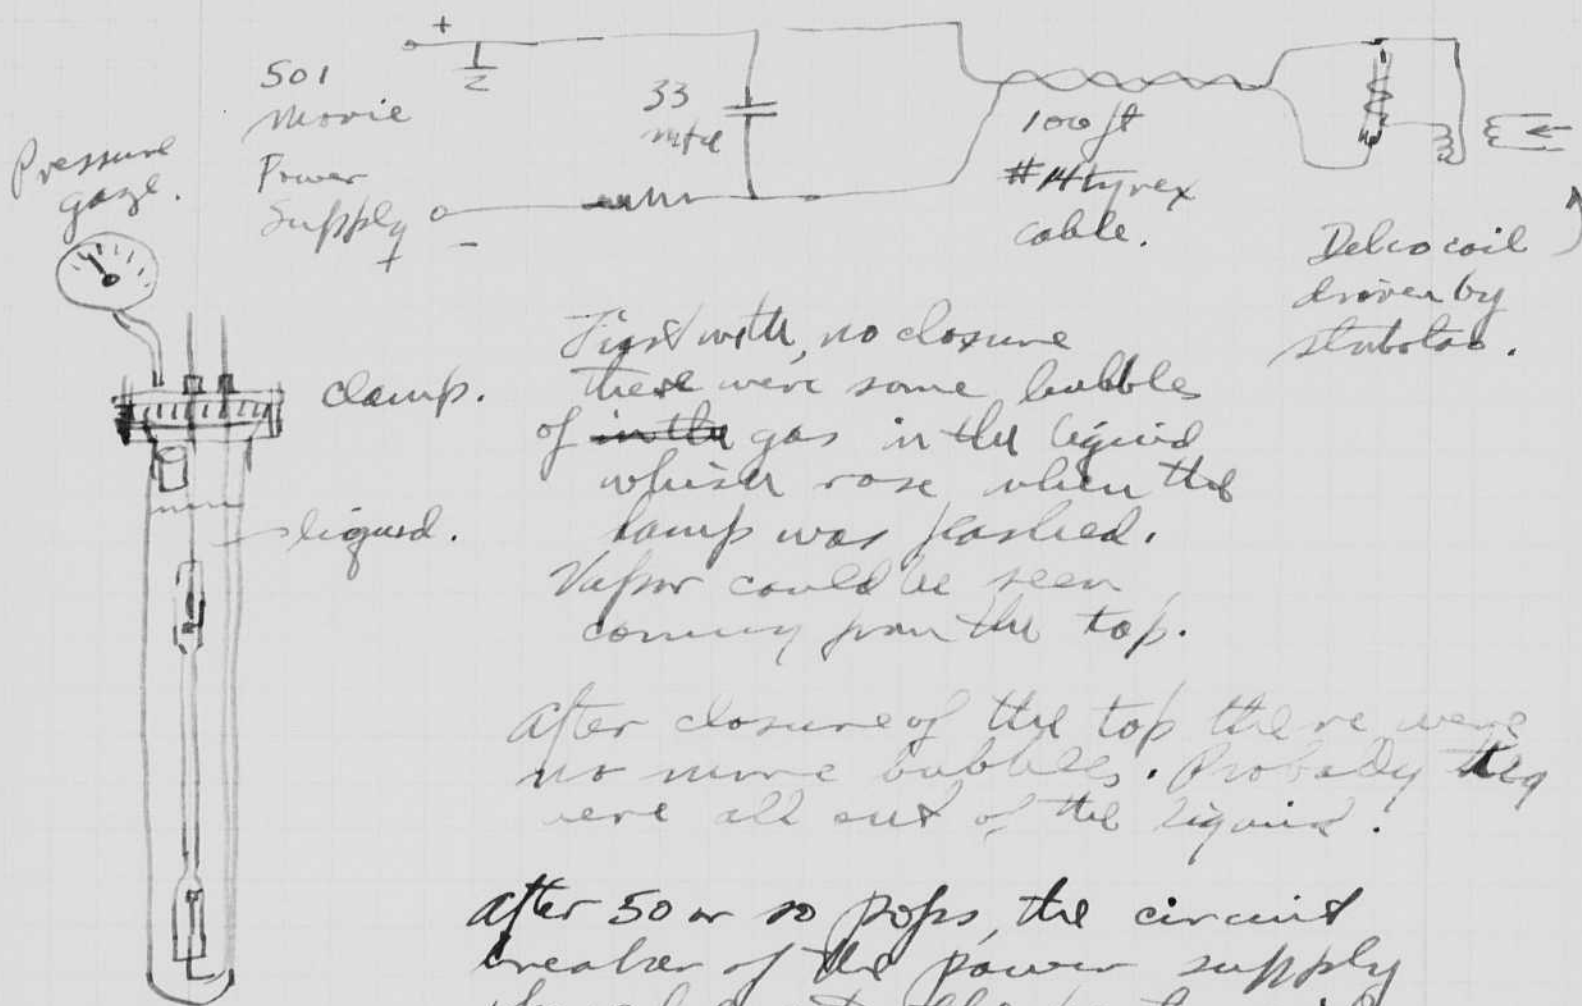 +
501
Movie
Power
Supply
-
33
mfd
100 ft
#14 tyrex
cable.
Delco coil
driven by
Pressure
gage.
clamp.
liquid.
First with, no closure
there were some bubbles
of in the gas in the liquid
which rose when the
lamp was flashed.
Vapor could be seen
coming from the top.
After closure of the top there were
no more bubbles. Probably they
were all out of the liquid.
After 50 or so pops, the circuit
breaker of the power supply